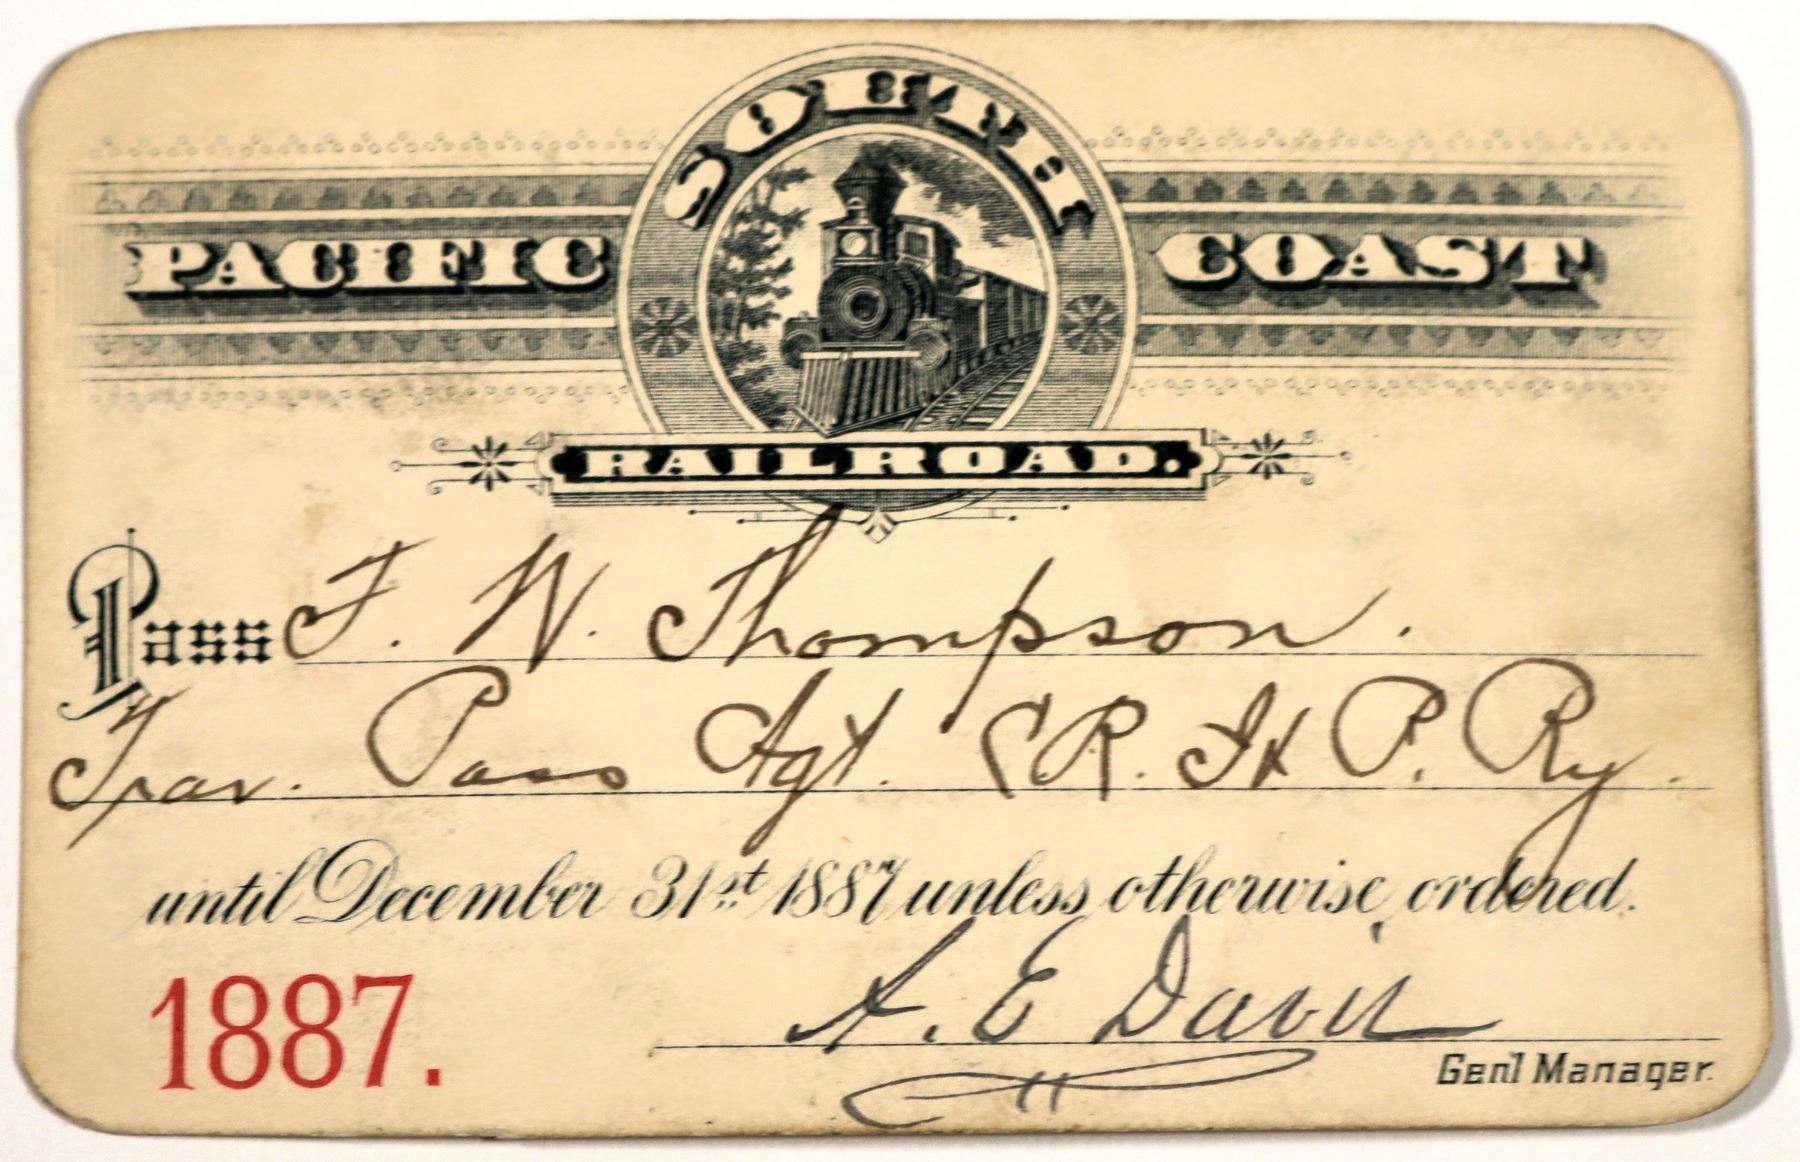 SOUTH
PACIFIC COAST
RAILROAD.
Pass F. W. Thompson.
Trav. Pass Agt. CR. I & P. Ry.
until December 31st 1887 unless otherwise ordered.
1887.
A. E. Davis
Gen'l Manager.